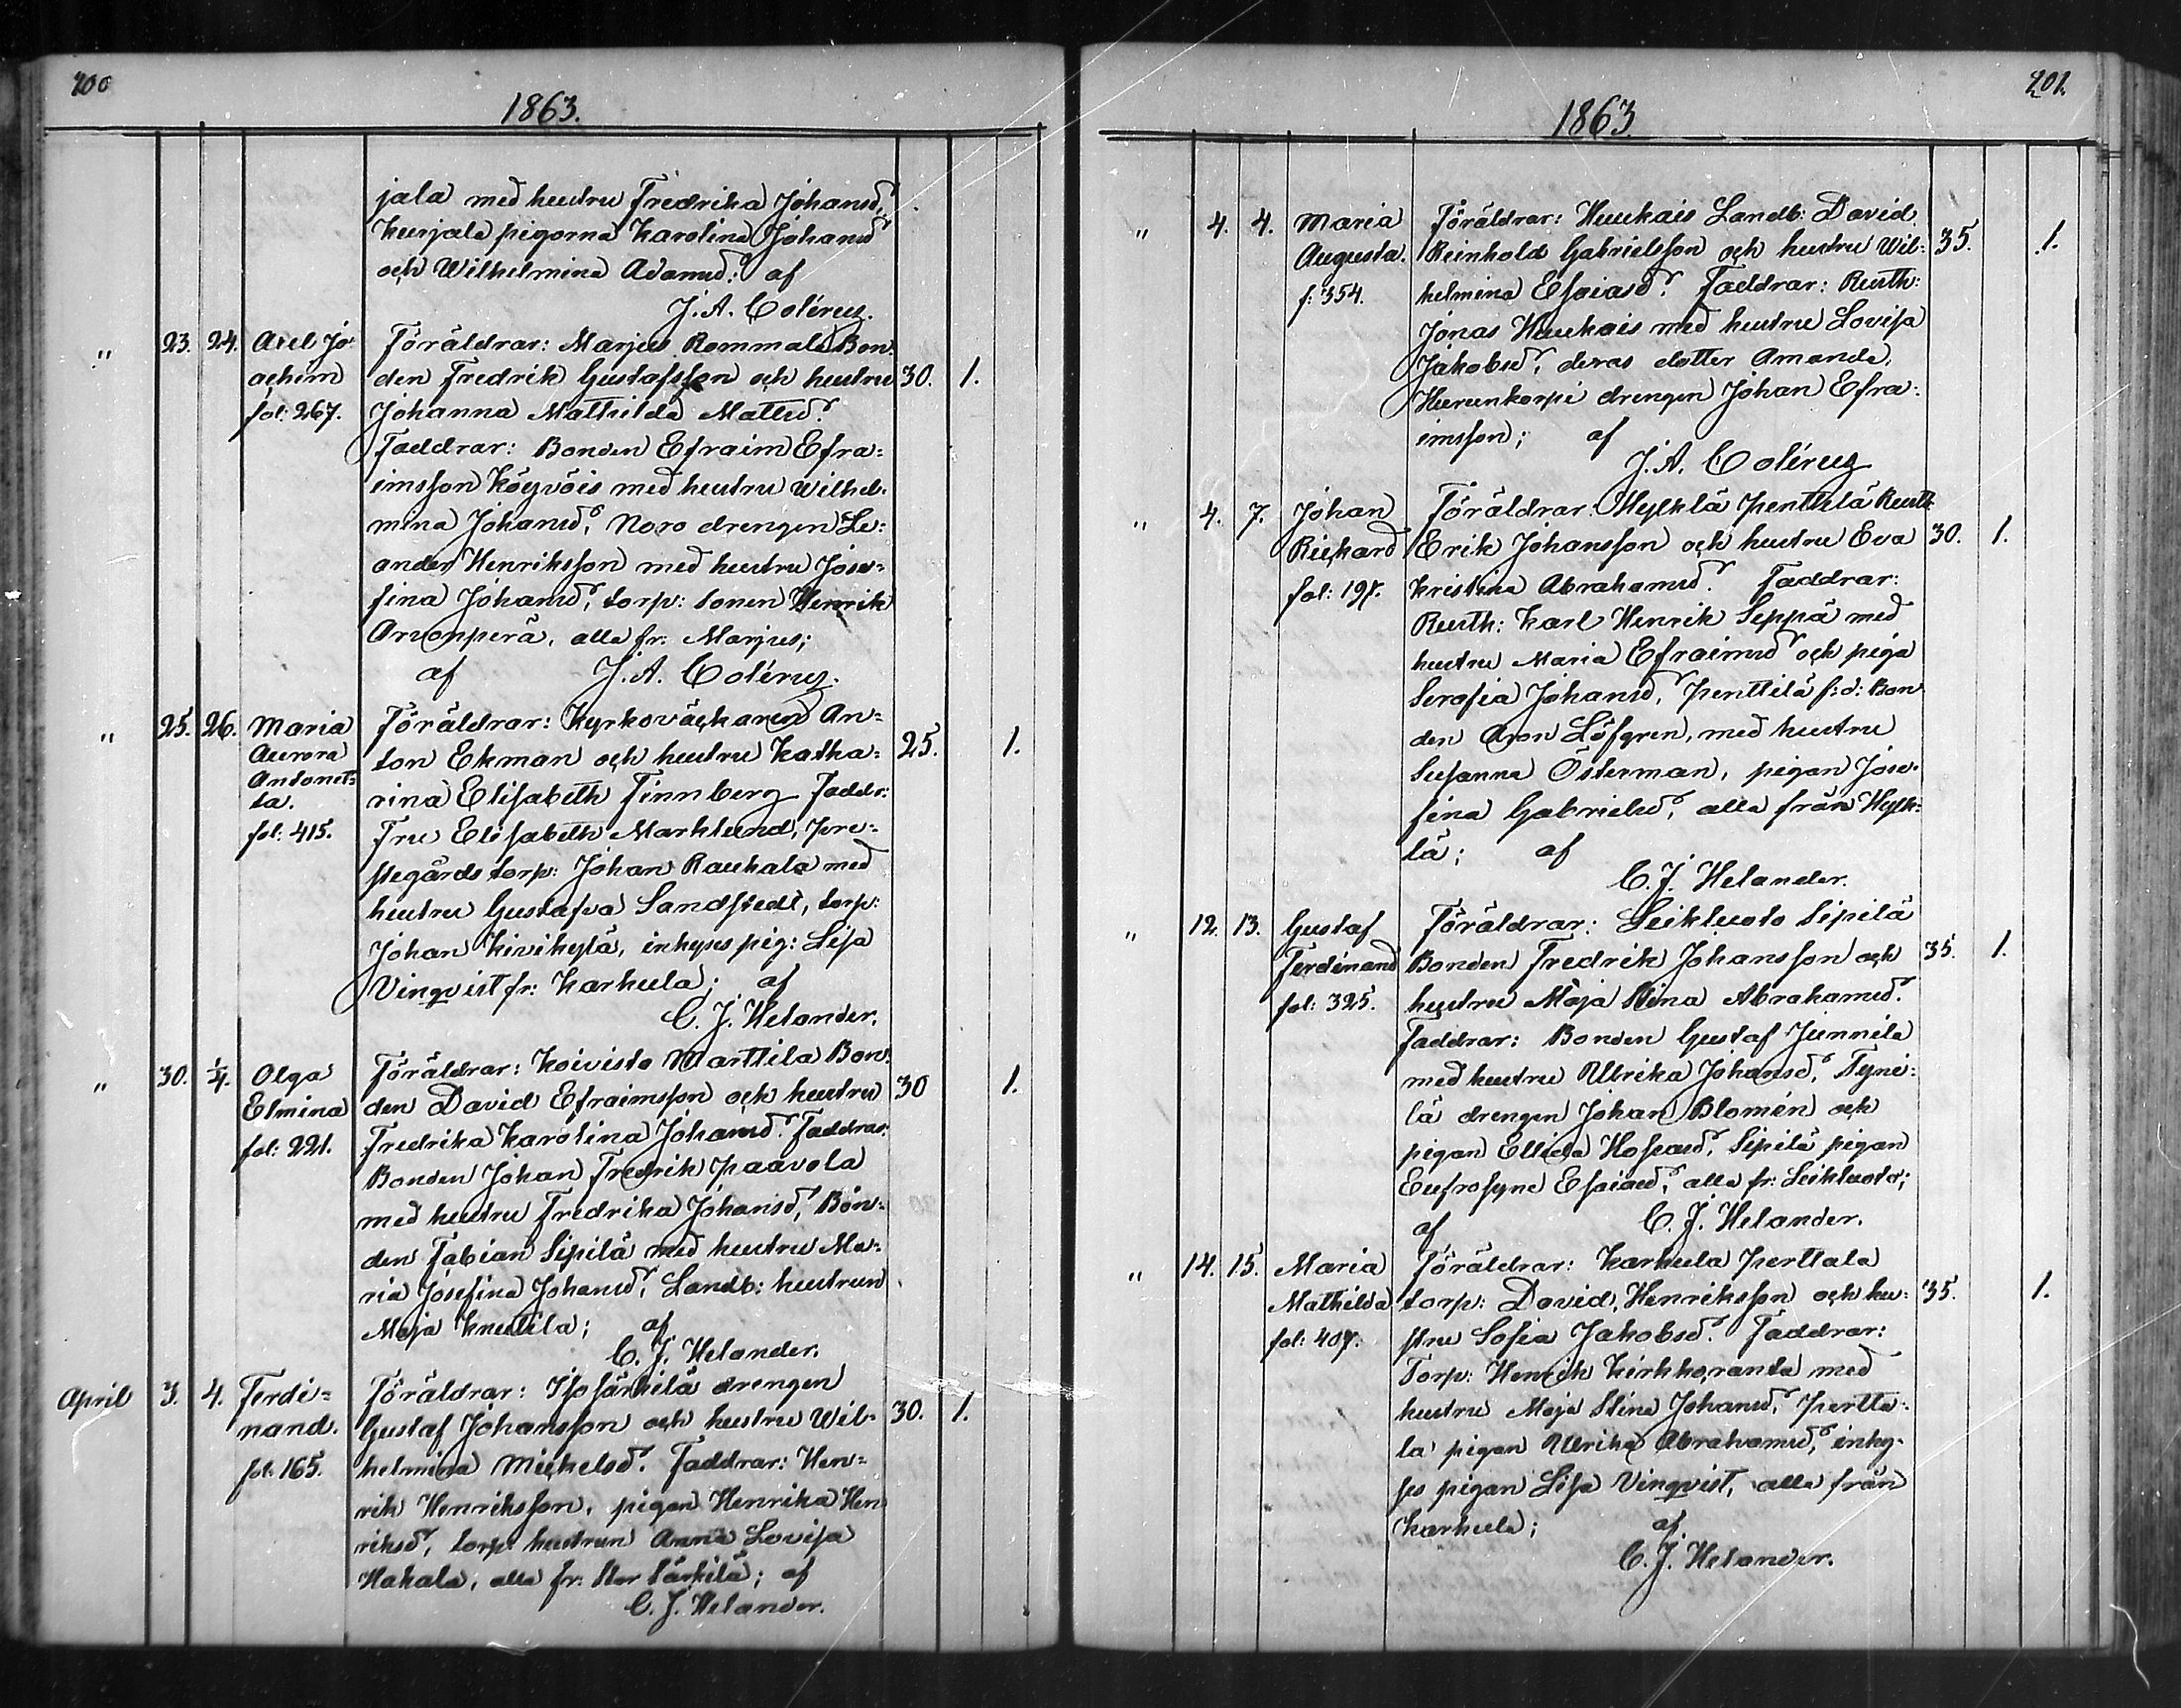 200
1863.
jala med hustru Fredrika Johansd:
Kurjala pigorna Karolina Johansd:
och Wilhelmina Adamsd: af
J. A. Colérus.
" 23. 24. Axel Jo- Föräldrar: Marjus Rommala Bon-
achim den Fredrik Gustafsson och hustru 30. 1.
fol: 267. Johanna Mathilda Mattsd:
Faddrar: Bonden Efraim Efra-
imsson Köyvöis med hustru Wilhel-
mina Johansd:, Noro drengen Le-
ander Henriksson med hustru Jose-
fina Johansd:, torp: sonen Henrik
Arvonperä, alla fr: Marjus;
af J. A. Colérus.
" 25. 26. Maria Föräldrar: Kyrkoväcktaren An-
Aurora ton Ekman och hustru Katha- 25. 1.
Antonet-
ta. rina Elisabeth Finnberg Faddr:
fol: 415. Fru Elisabeth Marklund, Pre-
stegårds torp: Johan Raukala med
hustru Gustafva Sandstedt, torp:
Johan Kivikylä, inhyses pig: Lisa
Vinqvist fr: Karhula; af
C. J. Helander.
" 30. 1/4. Olga Föräldrar: Koivisto Marttila Bon-
Elmina den David Efraimsson och hustru 30 1.
fol: 221. Fredrika Karolina Johansd: Faddrar:
Bonden Johan Fredrik Paavola
med hustru Fredrika Johansd:, Bon-
den Fabian Sipilä med hustru Ma-
ria Josefina Johansd:, Landb: hustrun
Maja Knuutila; af
C. J. Helander.
April 3. 4. Ferdi- Föräldrar: Isosärkilä drengen
nand. Gustaf Johansson och hustru Wil- 30. 1.
fol: 165. helmina Michelsd: Faddrar: Hen-
rik Henriksson, pigan Henrika Hen
riksd:, torp: hustrun Anna Lovisa
Hakala, alla fr: Stor Särkilä; af
C. J. Helander.
201.
1863
" 4. 4. Maria Föräldrar: Huukais Landb: David
Augusta. Reinhold Gabrielsson och hustru Wil- 35. 1.
f: 354. helmina Esaiasd: Faddrar: Rusth:
Jonas Huukais med hustru Lovisa
Jakobsd:, deras dotter Amanda,
drengen Johan Efra-
imsson; af
J. A. Colérus
" 4. 7. Johan Föräldrar: Hyrklä Penttilä Rusth:
Richard Erik Johansson och hustru Eva 30. 1.
fol: 197. Kristina Abrahamsd: Faddrar:
Rusth: Karl Henrik Seppä med
hustru Maria Efraimsd: och piga
Serafia Johansd:, Penttilä f: d: Bon
den Aron Löfgren, med hustru
Susanna Österman, pigan Jose-
fina Gabrielsd:, alla från Hyrk-
lä; af
C. J. Helander.
" 12. 13. Gustaf Föräldrar: Leikluoto Sipilä
Ferdinand Bonden Fredrik Johansson och 35. 1.
fol: 325. hustru Maja Stina Abrahamsd:
Faddrar: Bonden Gustaf Junnila
med hustru Ulrika Johansd:, Tyni-
lä drengen Johan Blomén och
pigan Sipilä pigan
Eufrosyne Esaiasd:, alla fr: Leikluoto;
af C. J. Helander.
" 14. 15. Maria Föräldrar: Karhula Perttala
Mathilda torp: David Henriksson och hu- 35. 1.
fol: 407. stru Sofia Jakobsd: Faddrar:
Torp: Henrik Kirkkoranta med
hustru Maja Stina Johansd:, Pertta-
la pigan Ulrika Abrahamsd:, inhy-
ses pigan Lisa Vinqvist, alla från
Karhula; af
C. J. Helander.